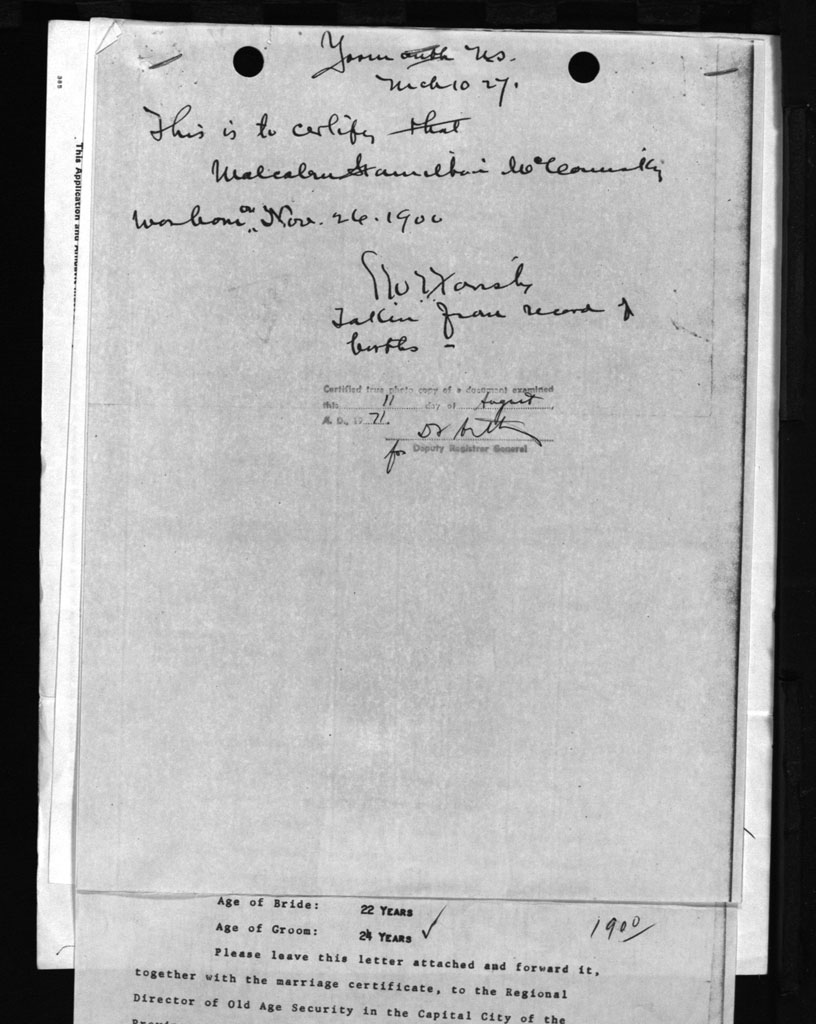 Yarmouth NS.
Mch 10 27.
This is to certify that
Malcolm Hamilton
was born on Nov. 26. 1900
Taken from record of
births -
Certified true photo copy of a document examined
this 11 day of August
A. D., 19 71.
for Deputy Registrar General
385
This Application and
Age of Bride: 22 YEARS
Age of Groom: 24 YEARS ✓ 1900
Please leave this letter attached and forward it,
together with the marriage certificate, to the Regional
Director of Old Age Security in the Capital City of the